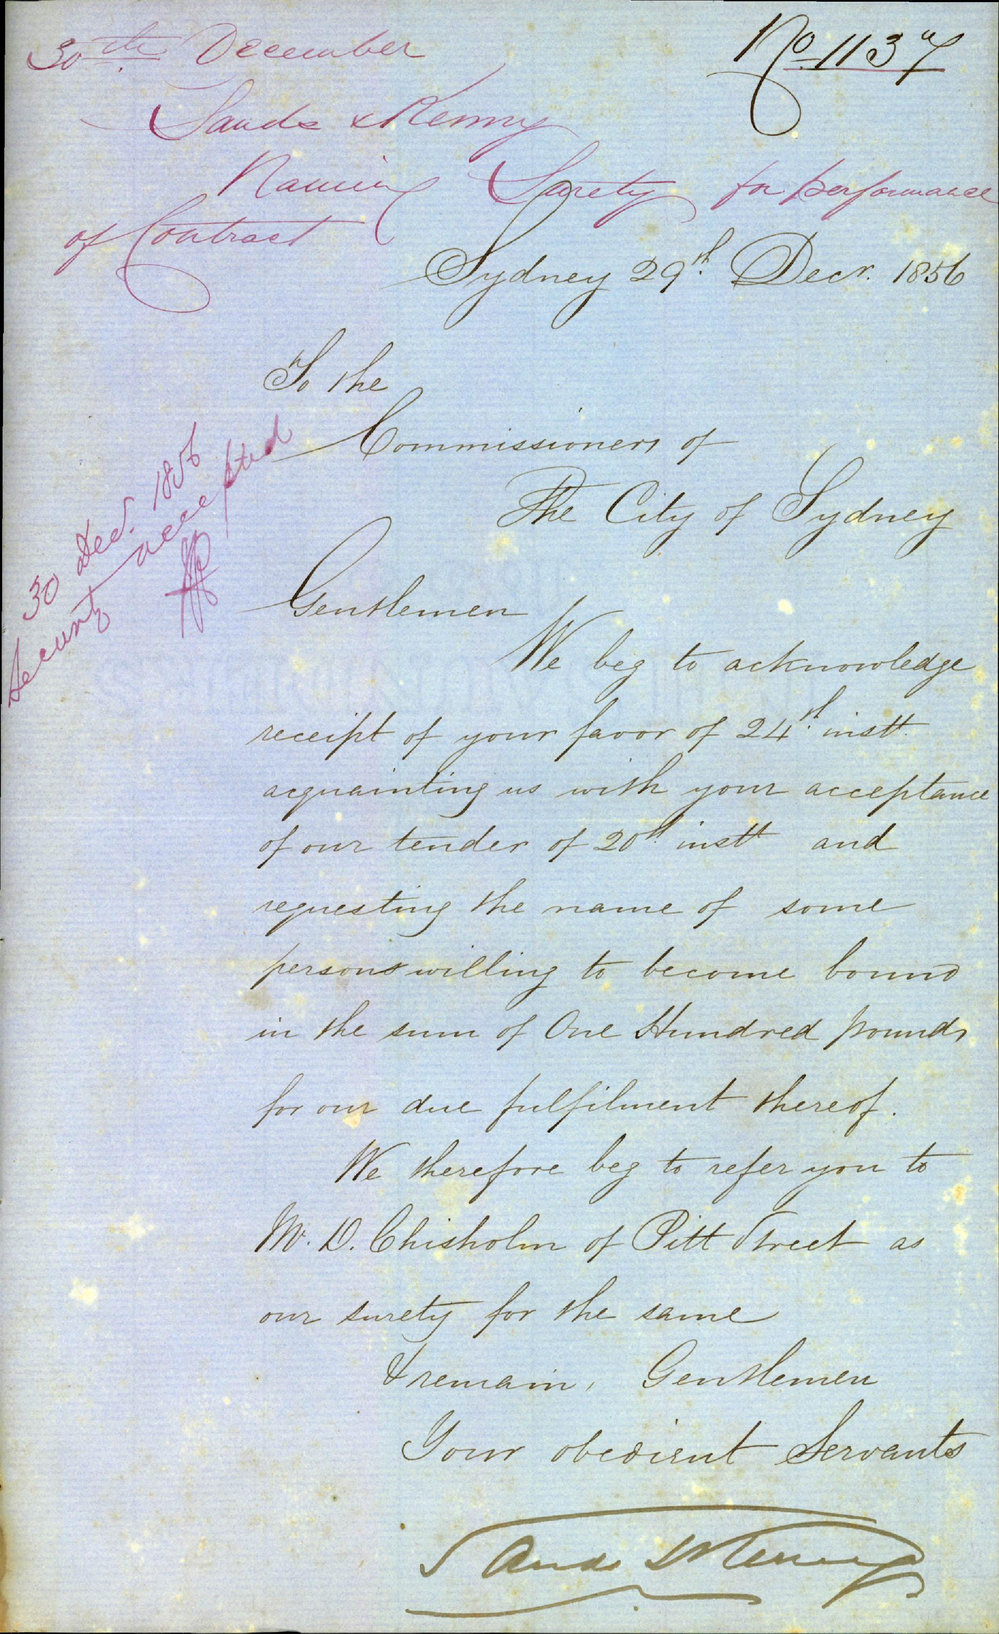 30th December
No. 1137
Sands & Kenny
Naming Surety for performance
of Contract
Sydney 29th. Decr. 1856
To the
Commissioners of
The City of Sydney
30 Decr. 1856
Security accepted
Gentlemen
We beg to acknowledge
receipt of your favor of 24th. instt.
acquainting us with your acceptance
of our tender of 20th instt and
requesting the name of some
persons willing to become bound
in the sum of One Hundred pounds
for our due fulfilment thereof.
We therefore beg to refer you to
Mr. D. Chisholm of Pitt Street as
our surety for the same
& remain, Gentlemen
Your obedient Servants
Sands & Kenny